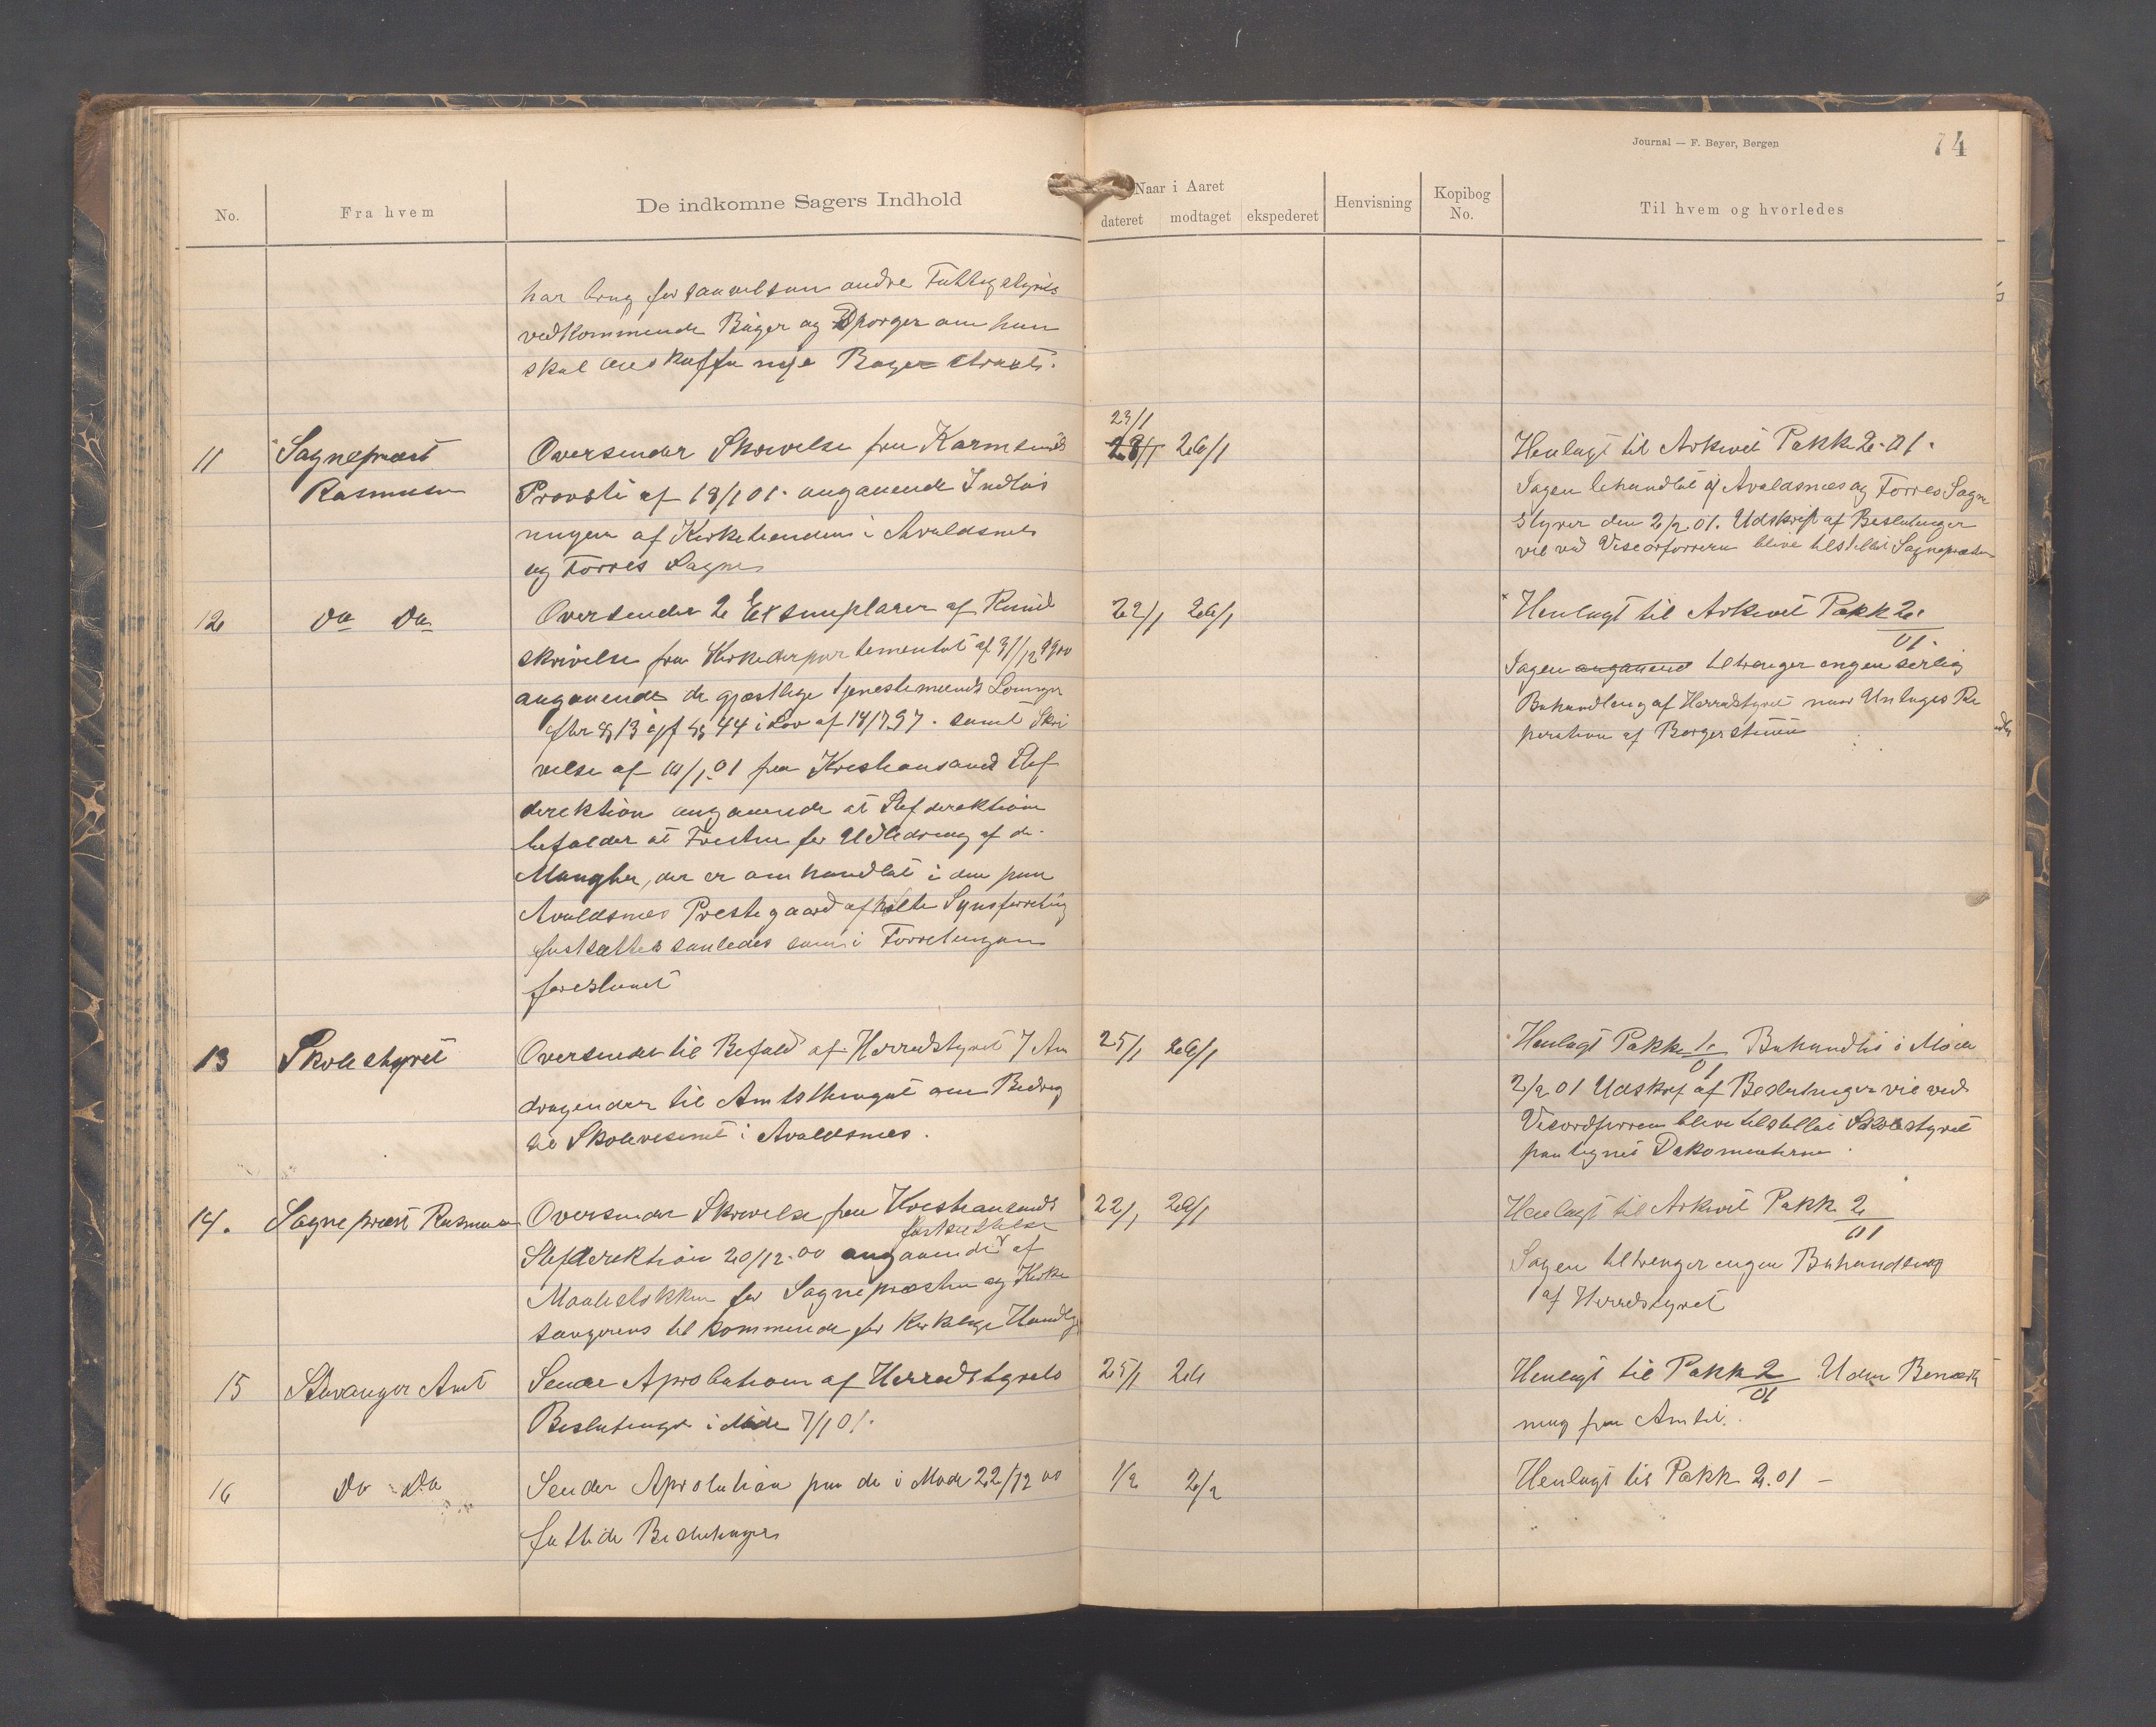 Journal — F. Beyer, Bergen
74
No.
Fra hvem
De indkomne Sagers Indhold
Naar i Aaret
dateret
modtaget
ekspederet
Henvisning
Kopibog
No.
Til hvem og hvorledes
har brug for saavelsom andre Fattigstyrets
vedkommende Bøger og Spørger om han
skal anskaffe nye Bøger straks.
11
Sognepræst
Rasmusen
Oversender Skrivelse fra Karmsunds
Provsti af 18/1 01. angaaende Indløs
ningen af Kirketienden i Avaldsnes
og Torves Sogne
23/1
28/1
26/1
Henlagt til Arkivet Pakke 2-01.
Sagen behandlet af Avaldsnes og Torves Sogne
Styrer den 2/2 01. Udskrift af Beslutninger
vil ved Viseordføreren blive tilstillet Sognepræsten
12
Do Do
Oversender 2 Exsemplarer af Rund
skrivelse fra Kirkedepartementet af 31/12 1900
angaaende de gjestlige tjenestemænds Lønninger
efter § 13 jf § 44 i Lov af 14/7 97. samt Skri
velse af 10/1 01 fra Kristiansand Stif
direktion angaaende at Stifdirektion
befaler at Fristen for Udbedring af de
Mangler, der er omhandlet i den paa
Avaldsnes Prestegaard afholte Synsforreting
fastsættes saaledes som i Forretningen
foreslaaet
22/1
26/1
Henlagt til Arkivet Pakk 2
01.
Sagen angaaend tiltrænger ingen serlig
Behandling af Herredstyret naar Undtages Re
peration af Borgerstuen
13
Skolestyret
Oversender til Befald af Herredstyret 7 An
dragender til Amtsthinget om Bidrag
til Skolevesenet i Avaldsnes.
25/1
26/1
Henlagt Pakke 1
01
Behandles i Møde
2/2 01 Udskrif af Beslutninger vil ved
Viseordføreren blive tilstillet Skolestyret
paategnet Dokomenterne.
14.
Sognepræst Rasmusen
Oversender Skrivelse fra Kristiansands
fastsættelse
Stifdirektion 20/12.00 angaaende af
Maalestokken for Sognepræsten og Kirke
sangerens tilkommende for Kirkelige Handlg
22/1
26/1
Henlagt til Arkivet Pakk 2
01
Sagen tiltrenger ingen Behandling
af Herredstyret
15
Stavanger Amt
Sender Aprobation af Herredstyrets
Beslutninger i Møde 7/1 01.
25/1
26
Henlagt til Pakk 2
01
Uden Bemærk
ning fra Amtet.
16
Do Do
Sender Aprobation paa de i Møde 22/12 00
fattede Beslutninger
1/2
2/2
Henlagt til Pakk 2.01 –